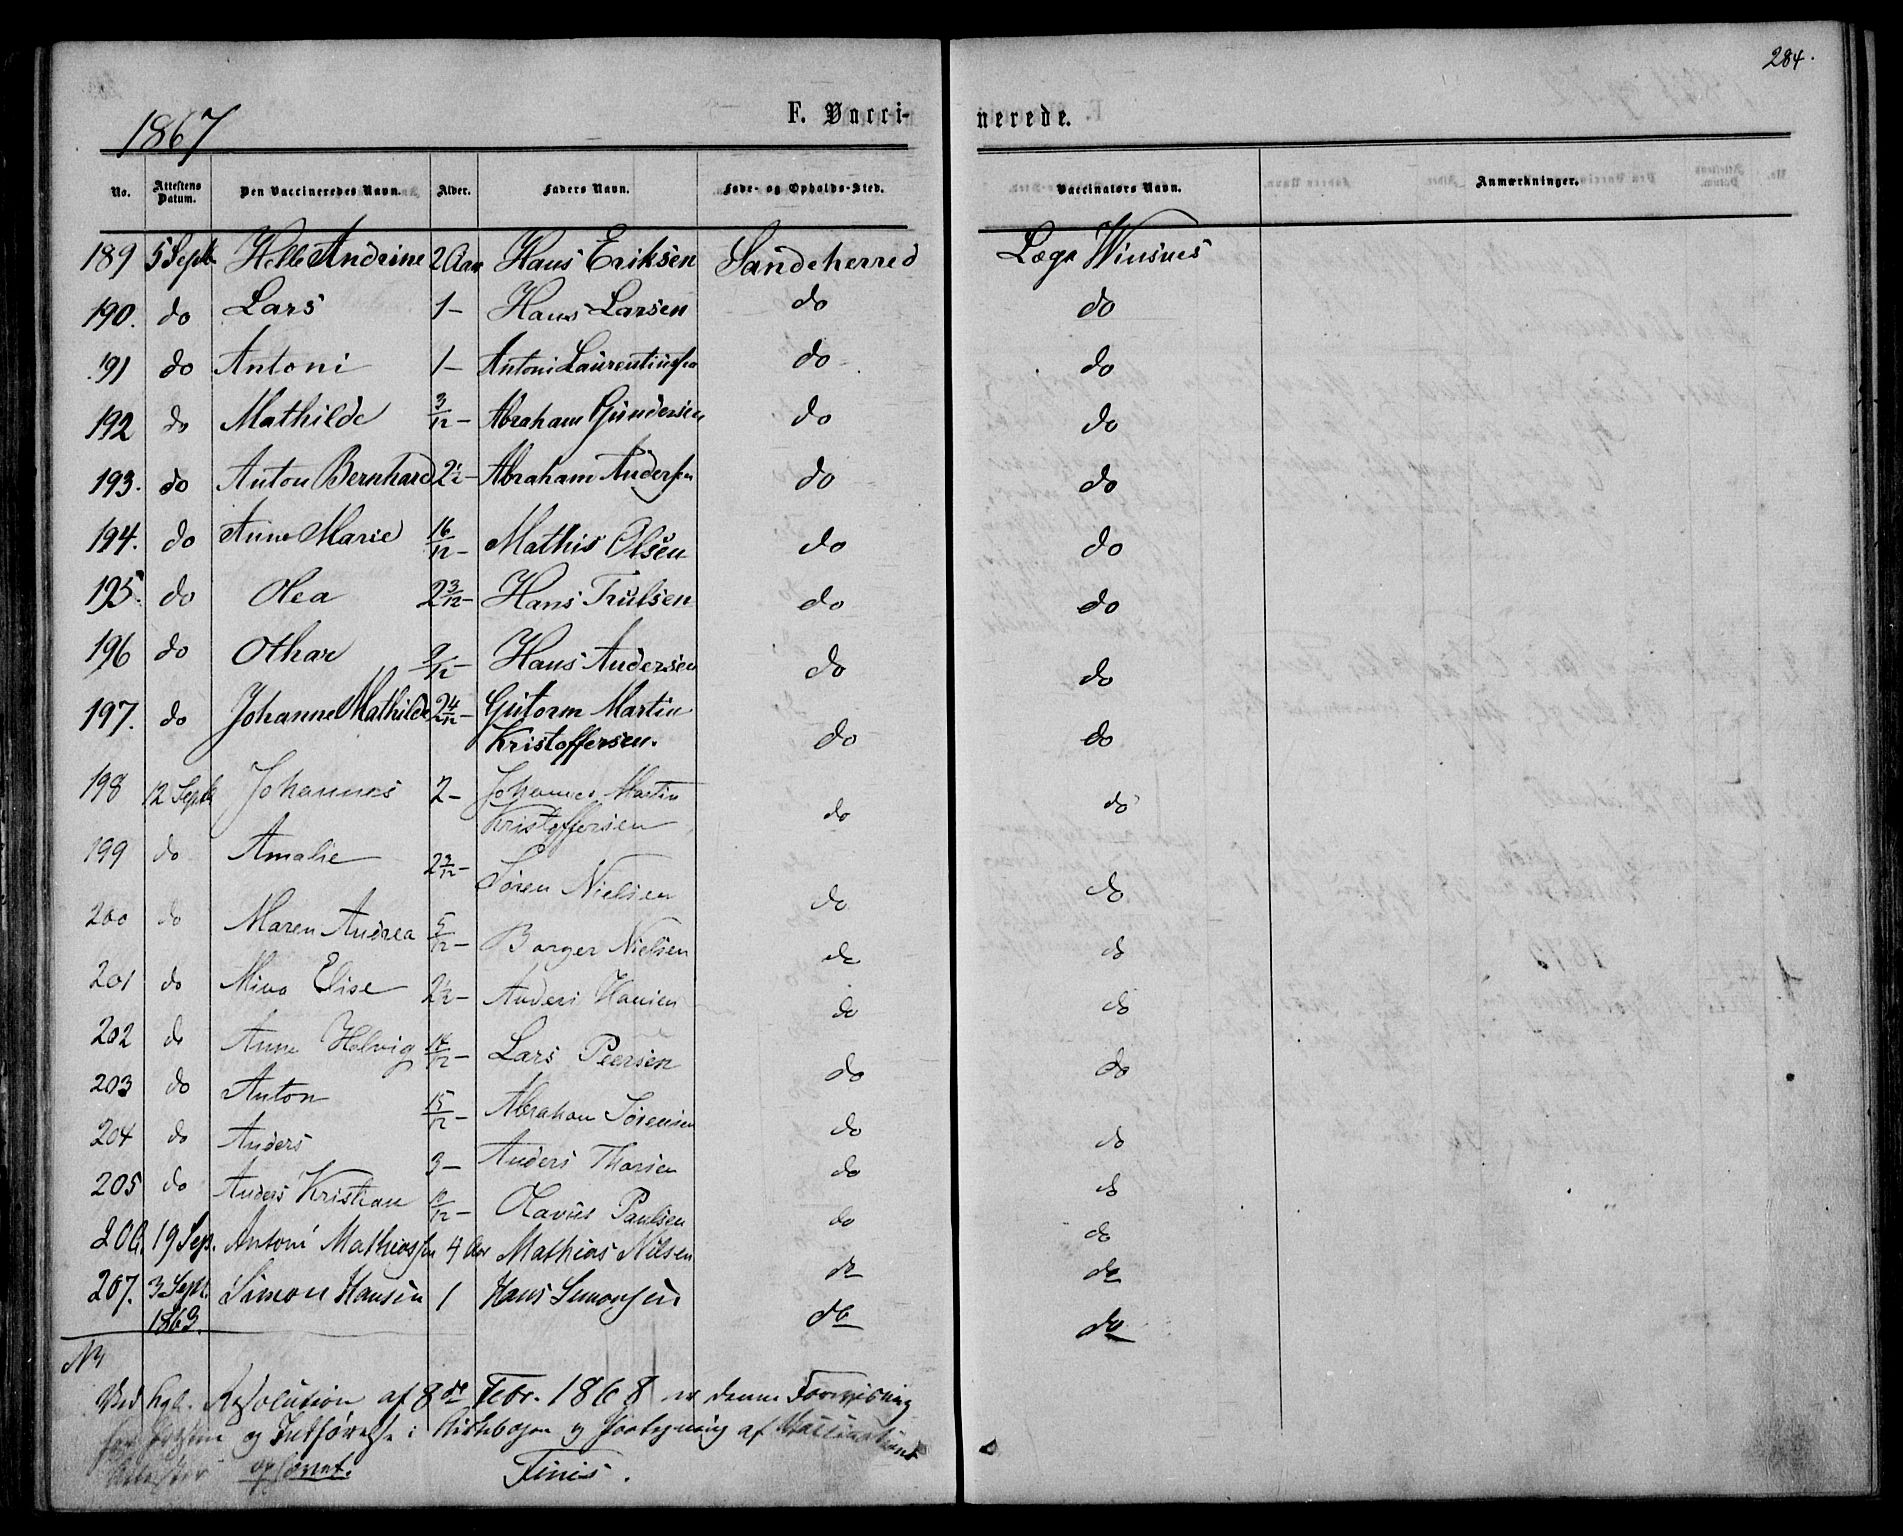 284.
1867
F. Vacci- nerede.
No. Attestens Datum. Den Vaccineredes Navn. Alder. Faders Navn. Føde- og Opholds-Sted. Vaccinators Navn. Anmærkninger.
189 5 Sept Helle Andrine 2 Aar Hans Eriksen Sandeherred Læge Winsnes
190. do Lars 1 - Hans Larsen do do
191 do Antoni 1 - Antoni Laurentiussen do do
192 do Mathilde 3/12 - Abraham Gundersen do do
193. do Anton Bernhard 2½ - Abraham Andersen do do
194. do Anne Marie 16/12 - Mathis Olsen do do
195. do Olea 2 3/12 - Hans Trulsen do do
196 do Othar 9/12 - Hans Andersen do do
197. do Johanne Mathilde 2 4/12 - Gutorm Martin
Kristoffersen. do do
198 12 Sept Johannes 2 - Johannes Martin
Kristoffersen do do
199 do Amalie 2 9/12 - Søren Nielsen do do
200 do Maren Andrea 5/12 - Borger Nielsen do do
201 do Mina Elise 2½ - Anders Hansen do do
202 do Anne Helvig /12 - Lars Peersen do do
203 do Anton 15/12 - Abraham Sørensen do do
204 do Anders 3 - Anders Thorsen do do
205 do Anders Kristian /12 - Olavus Paulsen do do
206. 19 Sep. Antoni Mathiassen 4 Aar Mathias Nilsen do do
207. 3 Sept. Simon Hansen 1 Hans Simonsen do do
1863.
Ved kgl. Resolution af 8de Febr. 1868 er denne
og Indførelse i Kirkebogen
ophævet. Finis.